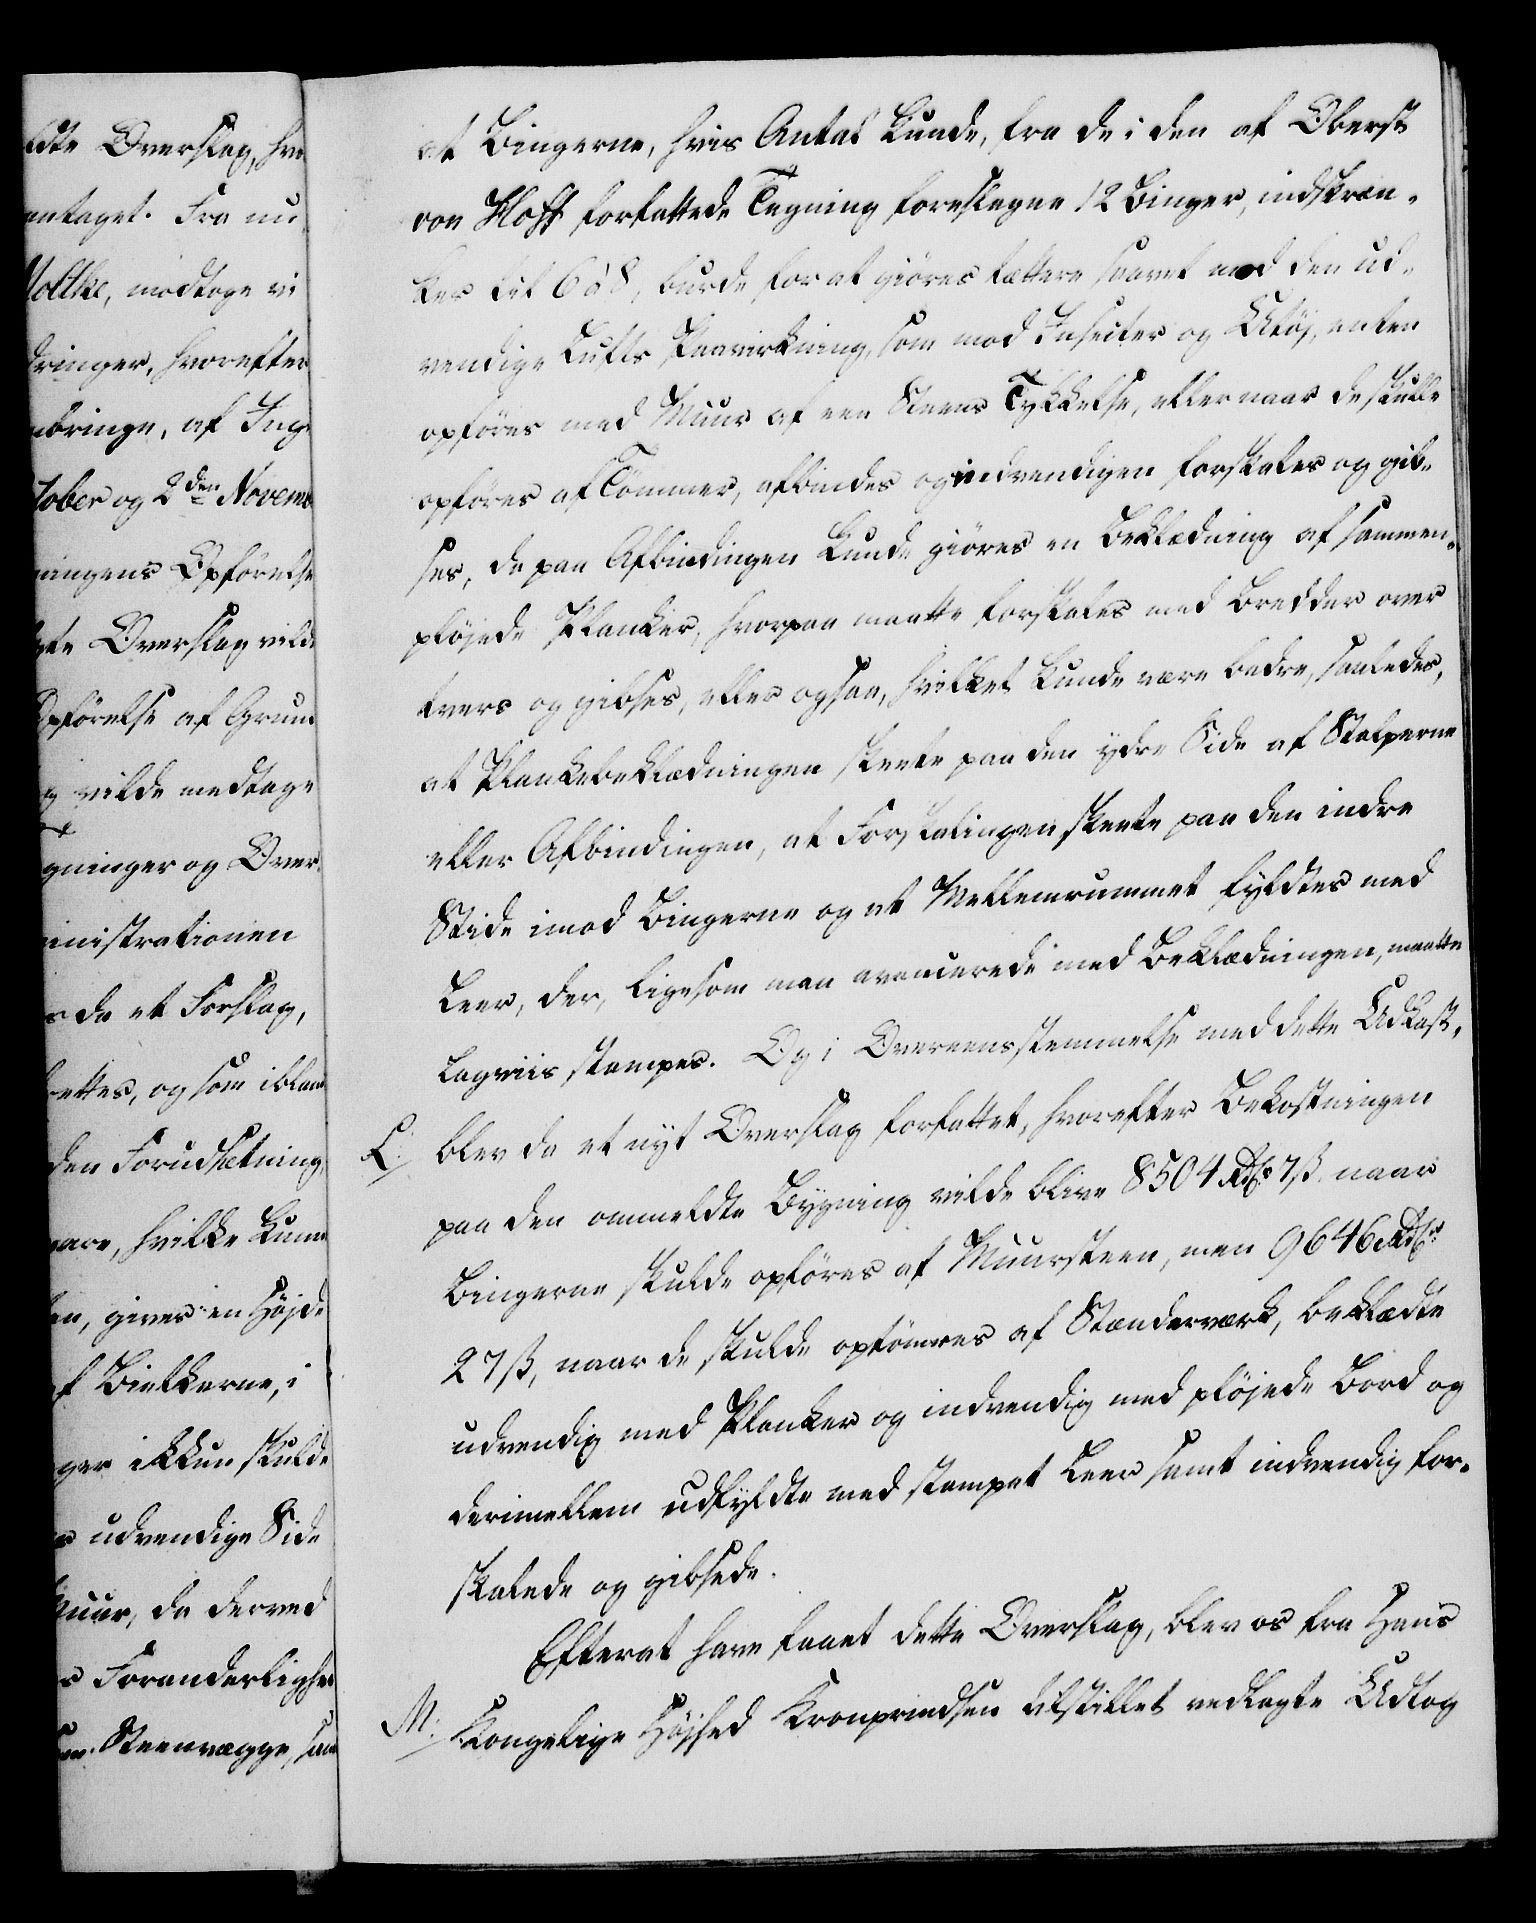 ldte Overslag, hvo
antaget. Fra nu
Moltke, modtoge vi
dringer, hvorefter
nbringe, af Ing
tober og 2den Novemb
ningens Opførelse
gte Overslag vilde
Opførelse af Grund
g vilde medtage
gninger og Over
inistrationen
s da et Forslag,
ettes, og som iblan
den Forudsætning
vare, hvilke kun
en, giver en Højde
af Bielkerne, i
ger ikkun skulde
s udvendige Side
Muur, da derved
s Foranderlighe
Steenvægge, saa
at Bingerne, hvis Antal kunde, fra de i den af Oberst
von Hoff forfattede Tegning foreslagne 12 Binger, indskræn-
kes til 6 à 8, burde for at giøres tættere saavel mod den ud-
vendige Lufts Paavirkning, som mod Insecter og Utøj, enten
opføres med Muur af een Steens Tykkelse, eller naar de skulle
opføres af Tømmer, afbindes og indvendigen forskales og gib-
ses, da paa Afbindingen kunde giøres en Beklædning af sammen-
pløjede Planker, hvorpaa maatte forskales med Bredder over
tvers og gibses, eller ogsaa, hvilket kunde være bedre, saaledes,
at Plankebeklædningen skeete paa den ydre Side af Stolperne
eller Afbindingen, at Forskalingen skeete paa den indre
Side imod Bingerne og at Mellemrummet fyldtes med
Leer, der, ligesom man avancerede med Beklædningen, maatte
lagviis stampes. Og i Overeensstemmelse med dette Udkast,
L. blev da et nyt Overslag forfattet, hvorefter Bekostningen
paa den ommeldte Bygning vilde blive 8504 Rdlr 7 ß naar
Bingerne skulde opføres af Muursteen, men 9646 Rdlr
27 ß, naar de skulde optømres af Stænderværk, beklædte
udvendig med Planker og indvendig med pløjede Bord og
derimellem udfyldte med stampet Leer samt indvendig for-
skalede og gibsede.
Efterat have faaet dette Overslag, blev os fra Hans
M. Kongelige Højhed Kronprindsen tilstillet vedlagte Udtog